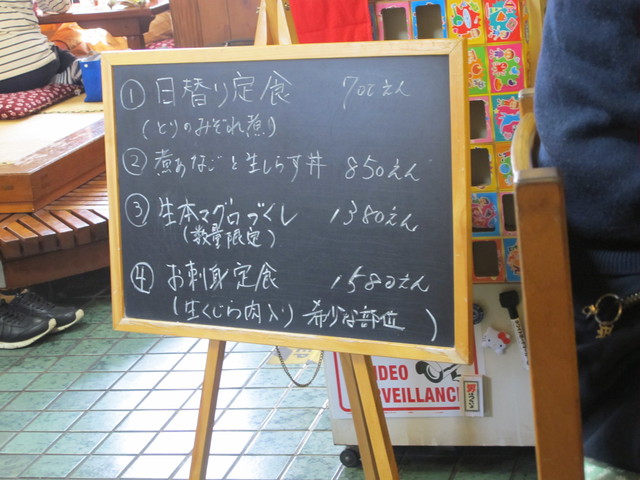 ① 日替り定食 700えん
(とりのみぞれ煮)
② 煮あなごと生しらす丼 850えん
③ 生本マグロづくし 1380えん
(数量限定)
④ お刺身定食 1580えん
(生くじら肉入り 希少な部位)
VIDEO
SURVEILLANCE